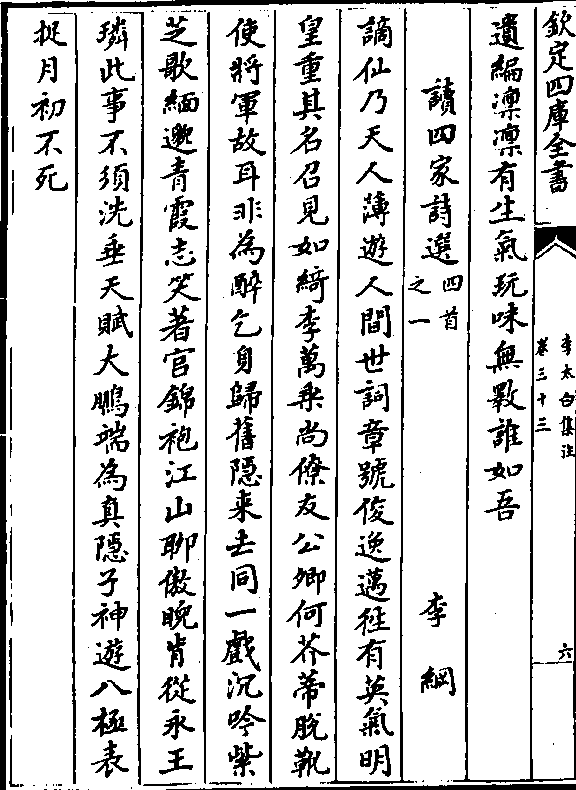 欽定四庫全書
李太白集注
卷三十三
六
遺編凜凜有生氣玩味無斁誰如吾
讀四家詩選四首之一
李綱
謫仙乃天人薄遊人間世詞章號俊逸邁往有英氣明
皇重其名召見如綺季萬乗尚僚友公卿何芥蒂脫靴
使將軍故耳非為醉乞身歸舊隱来去同一戲沉吟紫
芝歌緬邈青霞志笑著宫錦袍江山聊傲睨肯從永王
璘此事不須洗垂天賦大鵬端為真隱子神遊八極表
捉月初不死